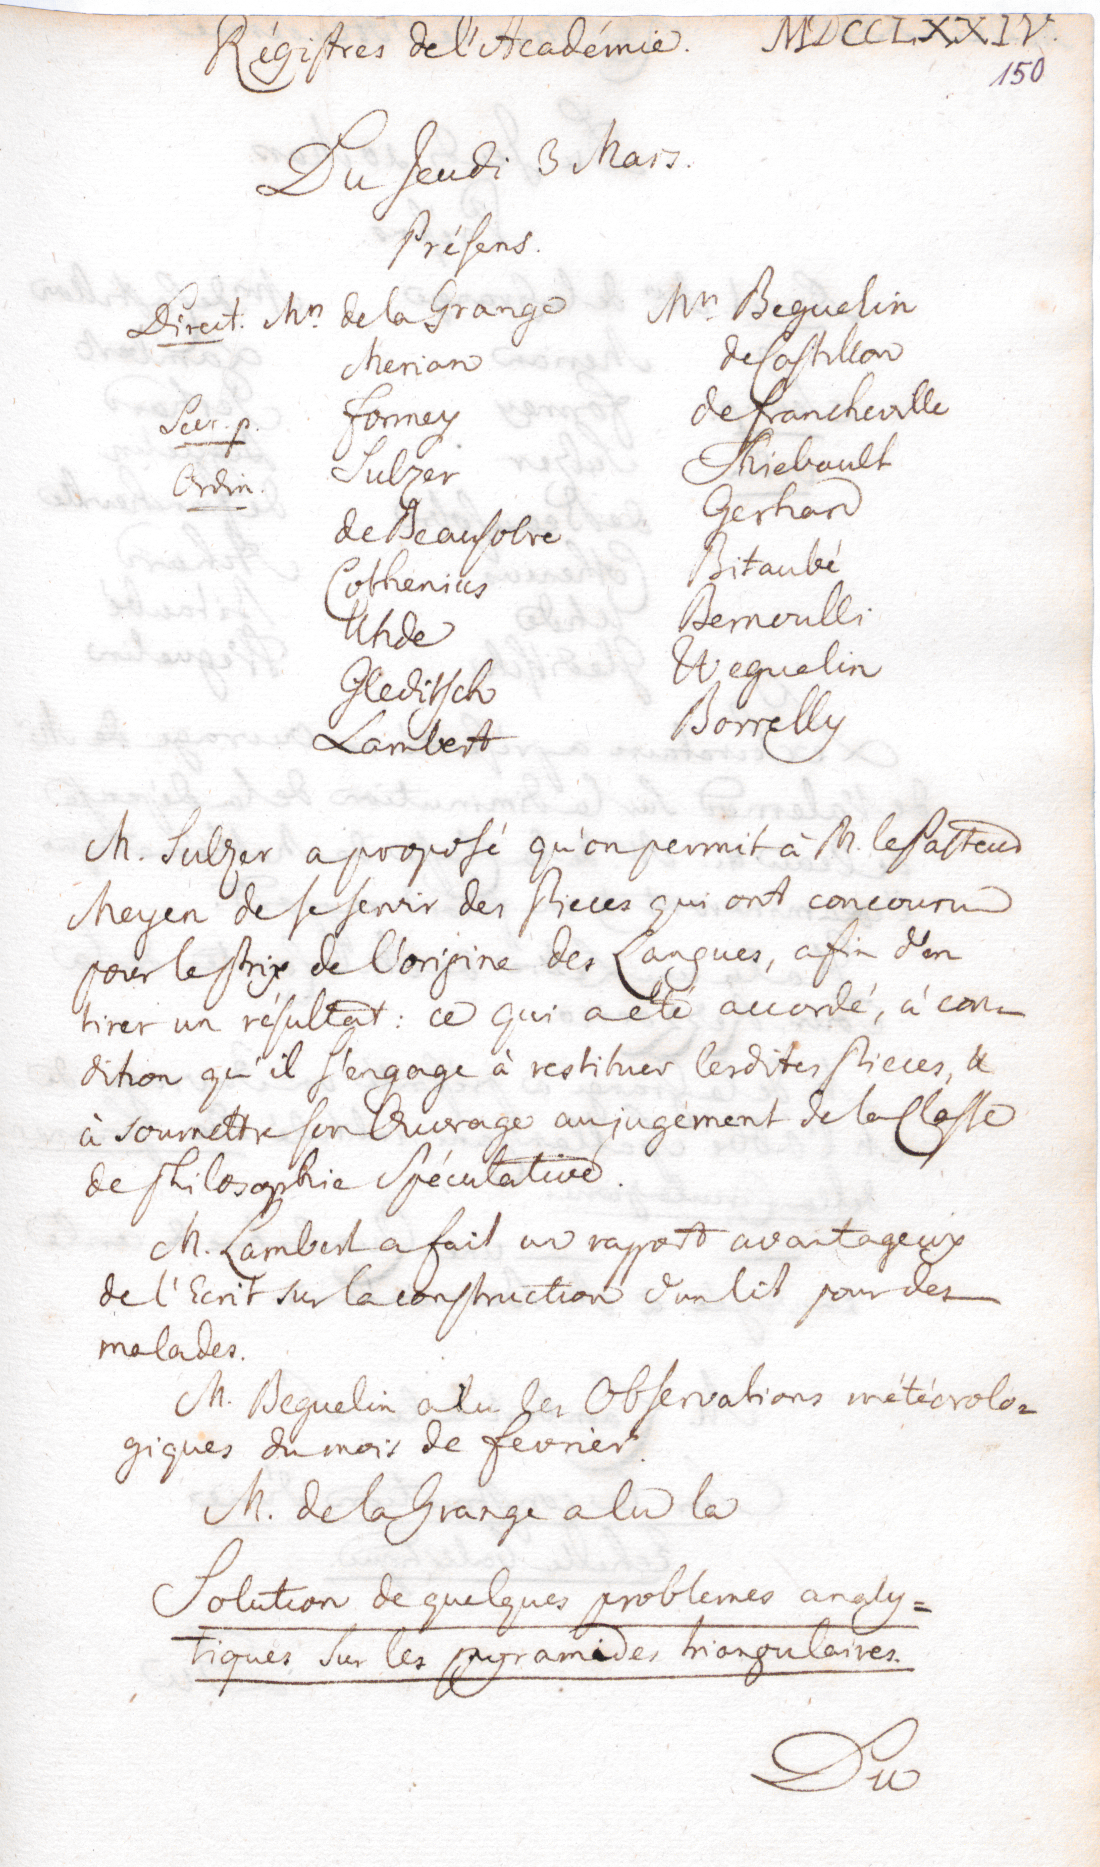 Régistres de l'Académie. MDCCLXXIV.
150
Du Jeudi 3 Mars.
Présens.
Direct. Mrs. de la Grange
Merian
Secr. p. Formey
Ordin. Sulzer
de Beausobre
Cothenius
Uhde
Gleditsch
Lambert
Mrs. Beguelin
de Castillon
de Francheville
Thiebault
Gerhard
Bitaubé
Bernoulli
Weguelin
Borrelly
M. Sulzer a proposé qu'on permit à M. le Pasteur
Meyen de se servir des Pieces qui ont concouru
pour le Prix de l'origine des Langues, afin d'en
tirer un résultat: ce qui a été accordé, à con-
dition qu'il s'engage à restituer lesdites Pieces, &
à soumettre son Ouvrage au jugement de la Classe
de Philosophie Spéculative.
M. Lambert a fait un rapport avantageux
de l'Ecrit sur la construction d'un lit pour des
malades.
M. Beguelin a lu les Observations météorolo=
giques du mois de Fevrier.
M. de la Grange a lu la
Solution de quelques problemes analy=
tiques sur les pyramides triangulaires.
Du